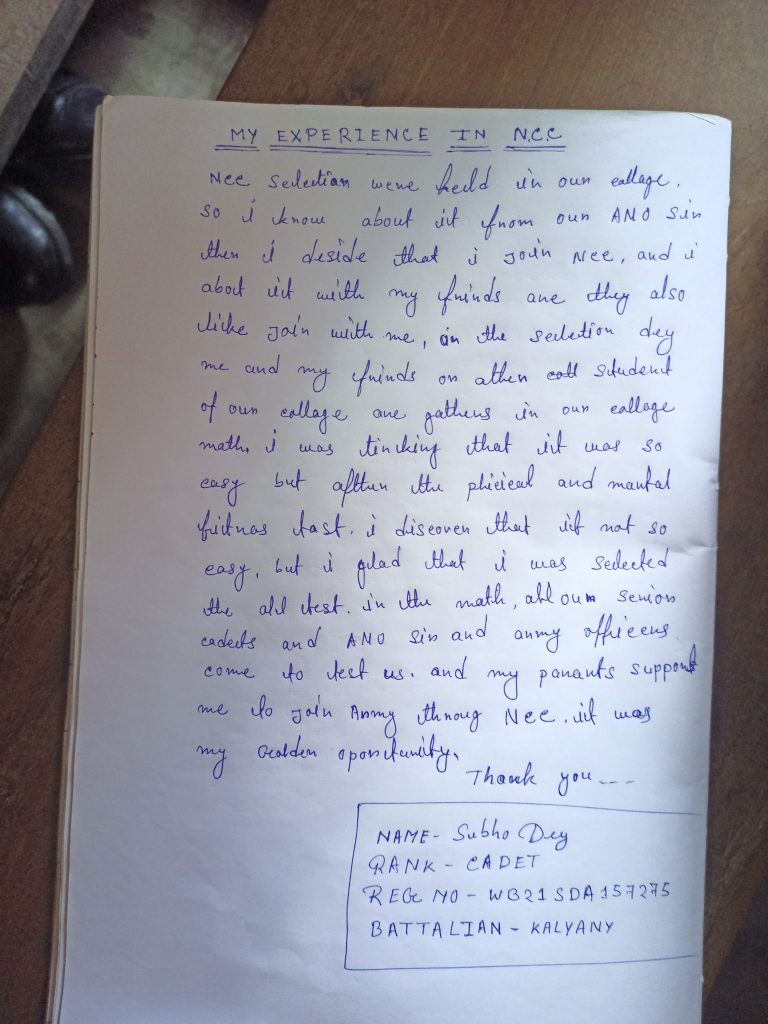 MY EXPERIENCE IN N.C.C
Ncc selection were held in our collage.
so i know about it from our ANO sir
then i deside that i join Ncc, and i
about it with my frinds are they also
like join with me, in the selection dey
me and my frinds or other coll student
of our collage are gathers in our collage
math. i was tincking that it was so
easy but after the phicical and mantal
fitnas tast. i discover that it not so
easy, but i glad that i was selected
the all test. in the math, all our senior
cadets and ANO sir and army officers
come to test us. and my parants support
me to join Army throug Ncc. it was
my Golden oporetunity.
Thank you ---
NAME - Subho Dey
RANK - CADET
REGC NO - WB21SDA157275
BATTALIAN - KALYANY